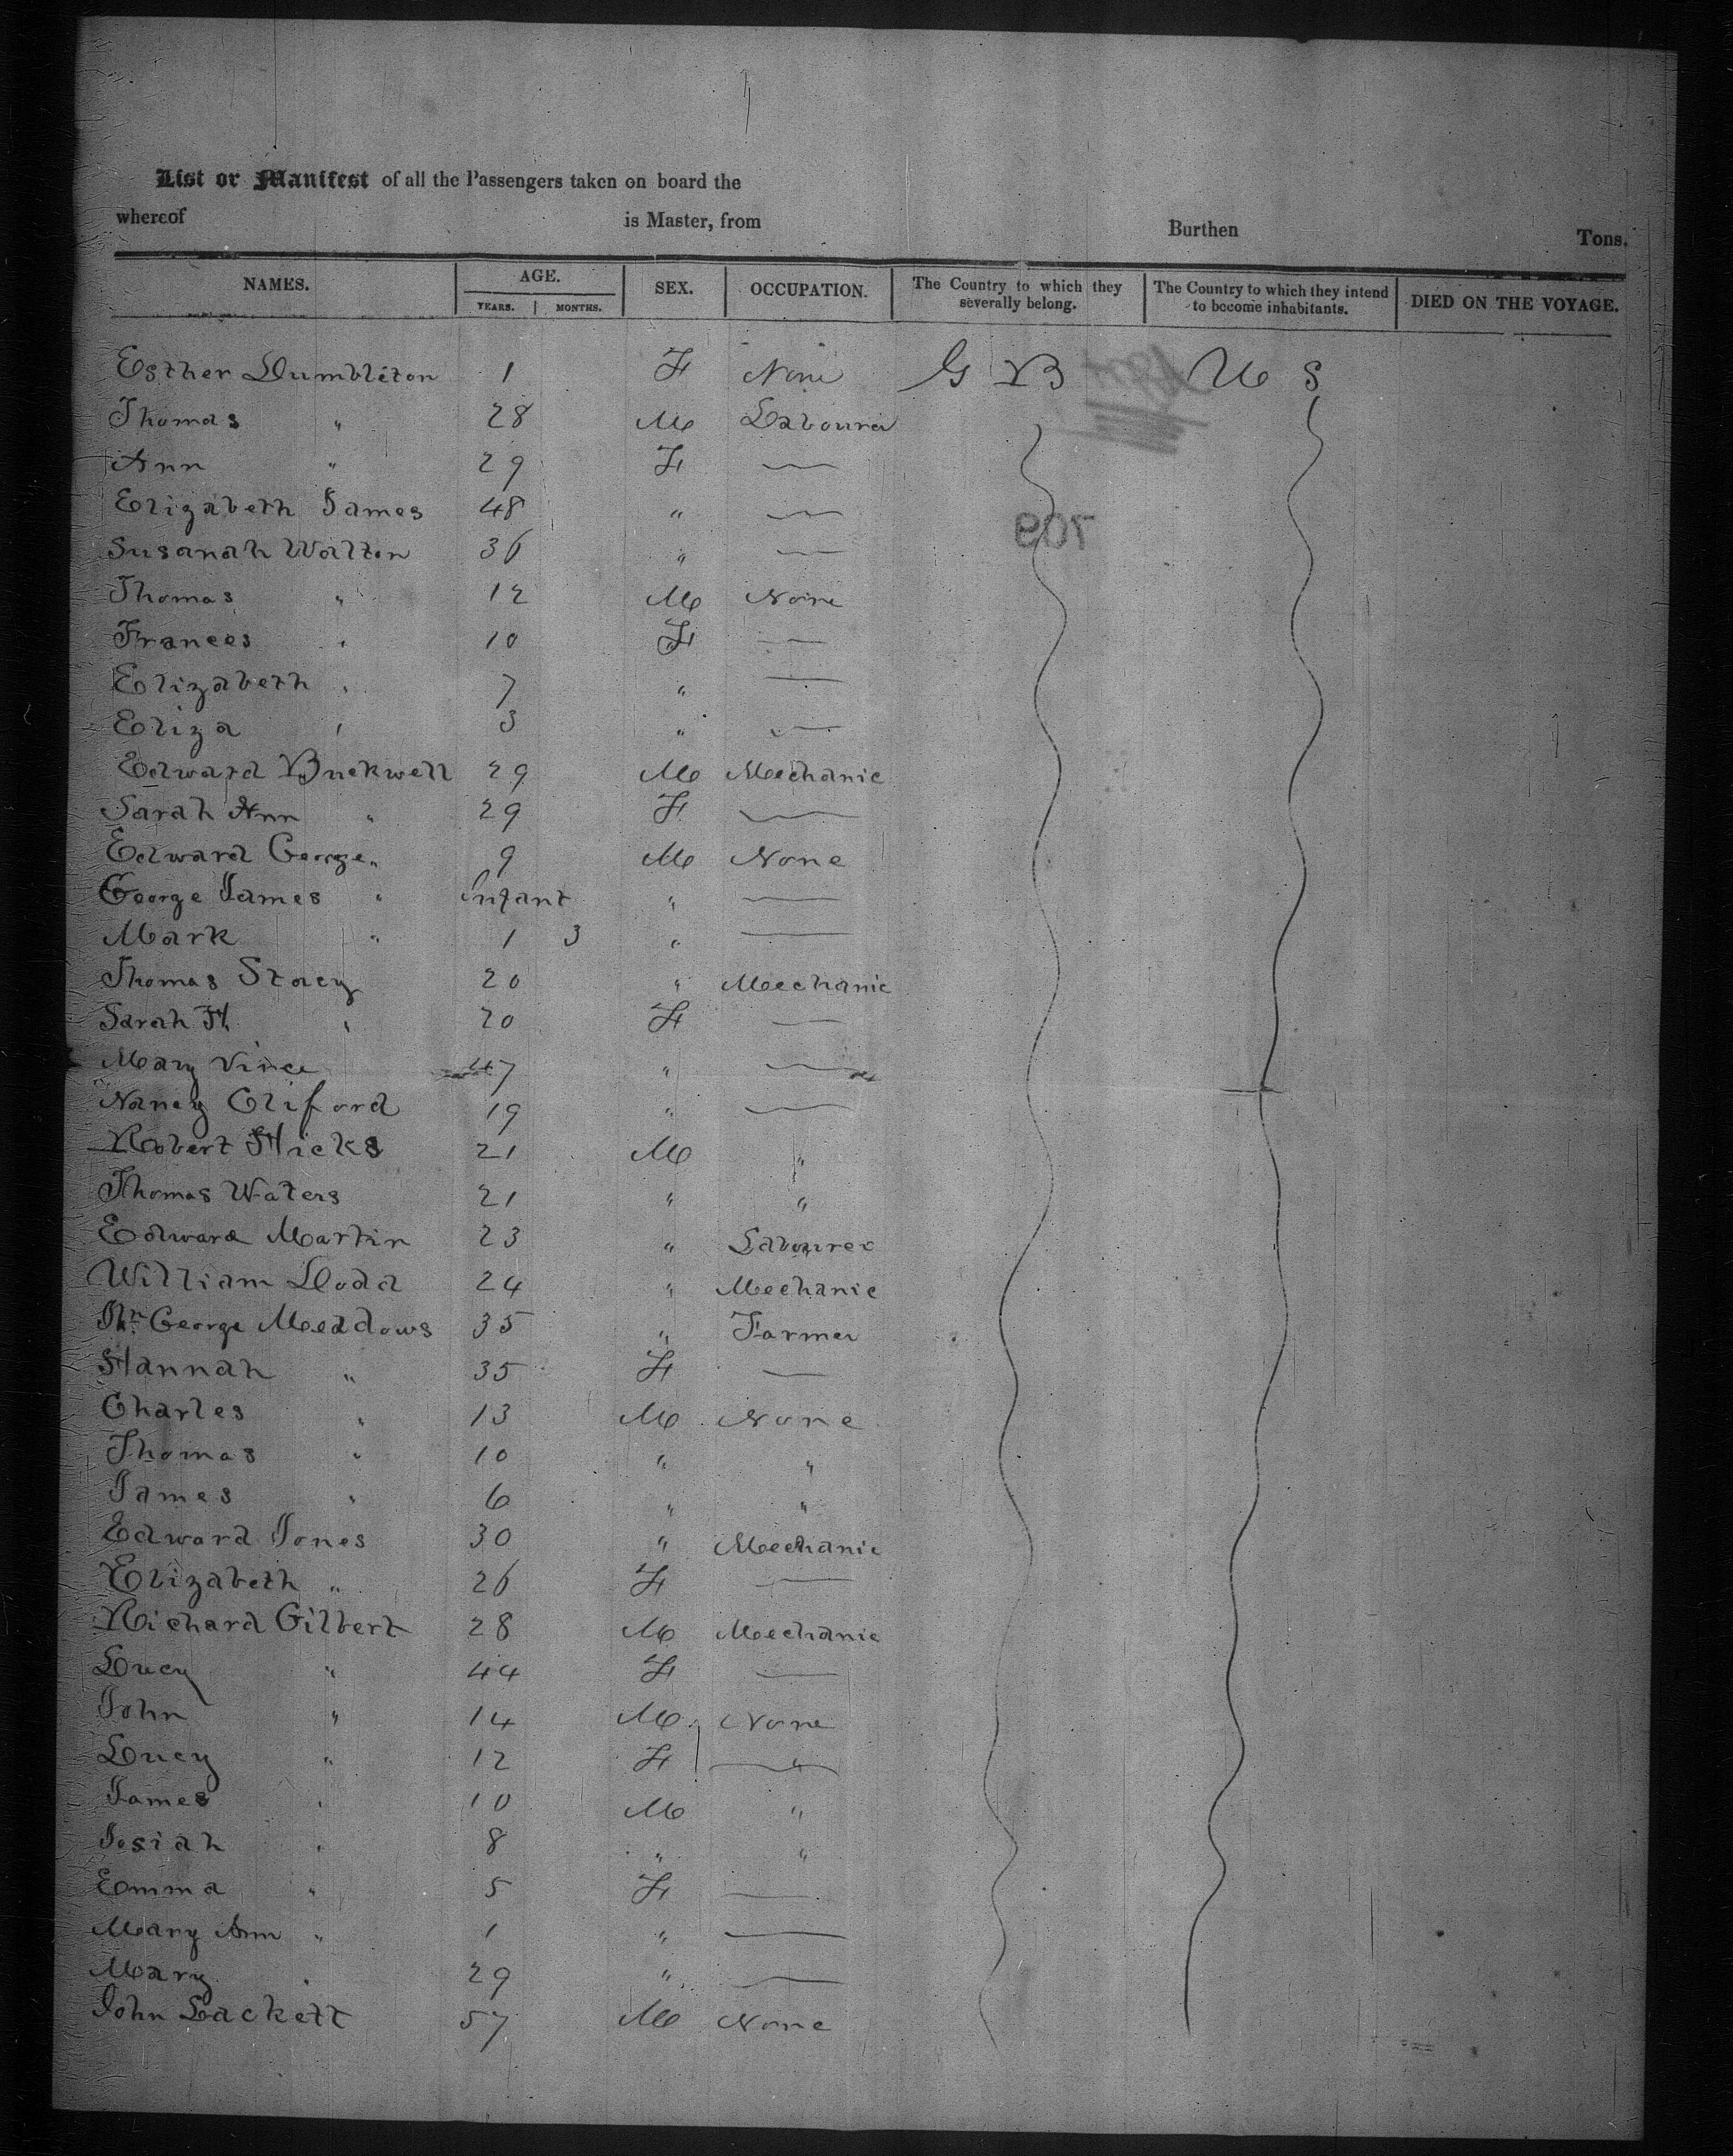 List or Manifest of all the Passengers taken on board the
whereof is Master, from Burthen Tons.
NAMES. AGE. SEX. OCCUPATION. The Country to which they severally belong. The Country to which they intend to become inhabitants. DIED ON THE VOYAGE.
YEARS. MONTHS.
Esther Dumbleton 1 F None G B U S
Thomas " 28 M Labourer
Ann " 29 F —
Elizabeth James 48 " —
Susanah Walton 36 " —
Thomas " 12 M None
Frances " 10 F —
Elizabeth " 7 " —
Eliza " 3 " —
Edward Buckwell 29 M Mechanic
Sarah Ann " 29 F —
Edward George " 9 M None
George James " Infant " —
Mark " 1 3 " —
Thomas Stacy 20 " Mechanic
Sarah H. " 20 F —
Mary Vince 47 " —
Nancy Cliford 19 " —
Robert Hicks 21 M "
Thomas Waters 21 " "
Edward Martin 23 " Labourer
William Dodd 24 " Mechanic
George Meddows 35 " Farmer
Hannah " 35 F —
Charles " 13 M None
Thomas " 10 " "
James " 6 " "
Edward Jones 30 " Mechanic
Elizabeth " 26 F —
Richard Gilbert 28 M Mechanic
Lucy " 44 F —
John " 14 M None
Lucy " 12 F "
James " 10 M "
Josiah " 8 " "
Emma " 5 F —
Mary Ann " 1 " —
Mary " 29 " —
John Lackett 57 M None